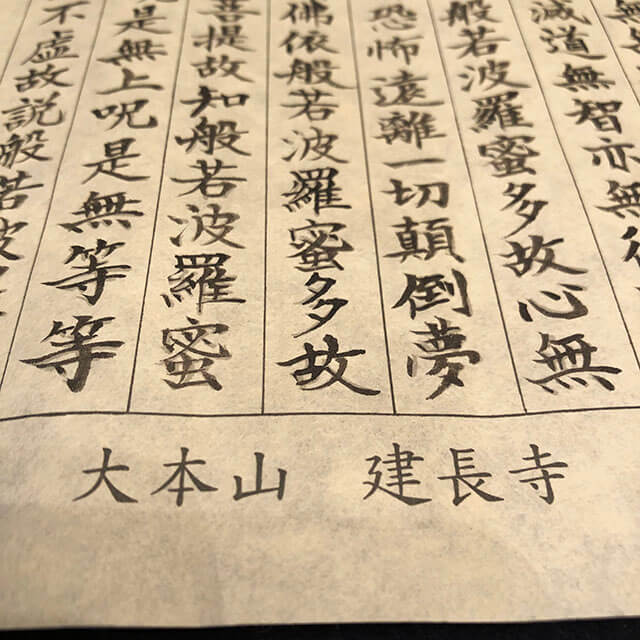 滅道無智亦無得
般若波羅蜜多故心無
恐怖遠離一切顛倒夢
佛依般若波羅蜜多故
菩提故知般若波羅蜜
是無上呪是無等等
不虛故説般若波
大本山　建長寺